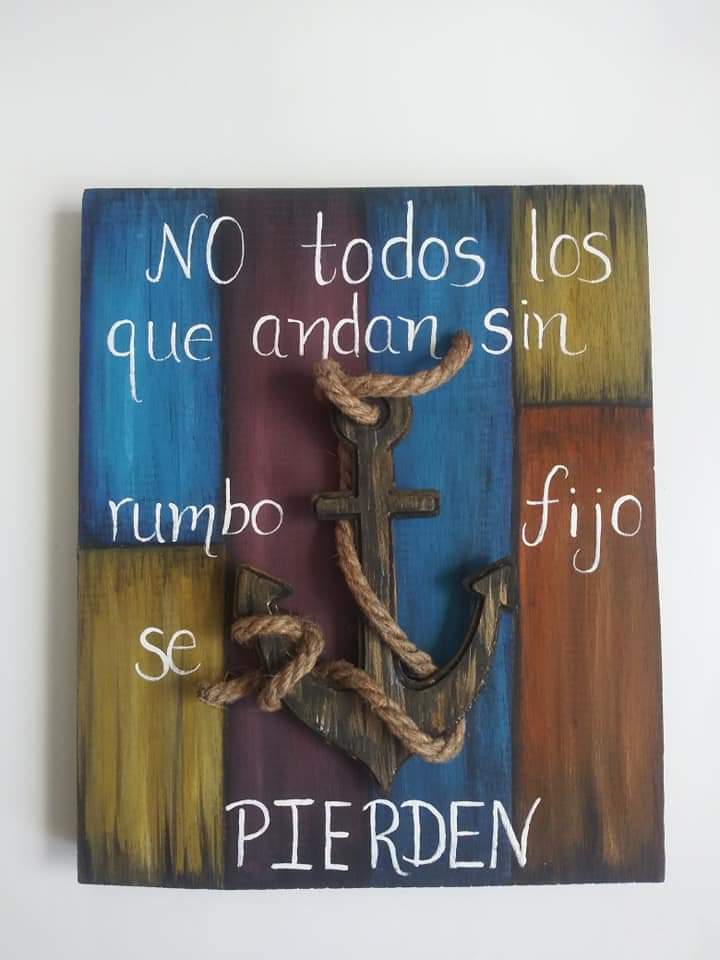 NO todos los
que andan sin
rumbo fijo
se
PIERDEN